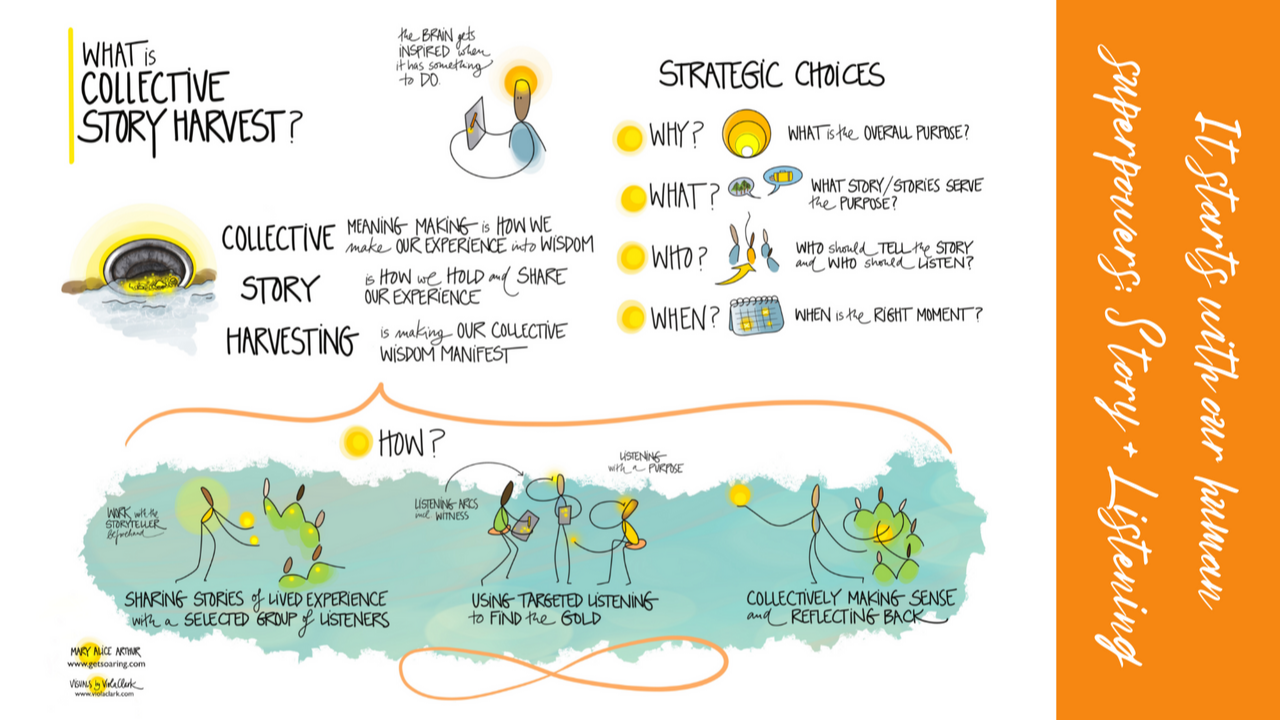 WHAT is
COLLECTIVE
STORY HARVEST?
the BRAIN gets
INSPIRED when
it has something
to DO.
COLLECTIVE
MEANING MAKING is HOW WE
make OUR EXPERIENCE into WISDOM
STORY
is HOW we HOLD and SHARE
OUR EXPERIENCE
HARVESTING
is making OUR COLLECTIVE
WISDOM MANIFEST
STRATEGIC CHOICES
WHY?
WHAT is the OVERALL PURPOSE?
WHAT?
WHAT STORY/STORIES SERVE
the PURPOSE?
WHO?
WHO should TELL the STORY
and WHO should LISTEN?
WHEN?
WHEN is the RIGHT MOMENT?
HOW?
WORK with the
STORYTELLER
Beforehand
SHARING STORIES of LIVED EXPERIENCE
with a SELECTED GROUP of LISTENERS
LISTENING ARCS
and WITNESS
LISTENING
with a PURPOSE
USING TARGETED LISTENING
to FIND the GOLD
COLLECTIVELY MAKING SENSE
and REFLECTING BACK
MARY ALICE ARTHUR
www.getsoaring.com
VISUALS by Viola Clark
www.violaclark.com
It starts with our human
superpowers: Story + Listening